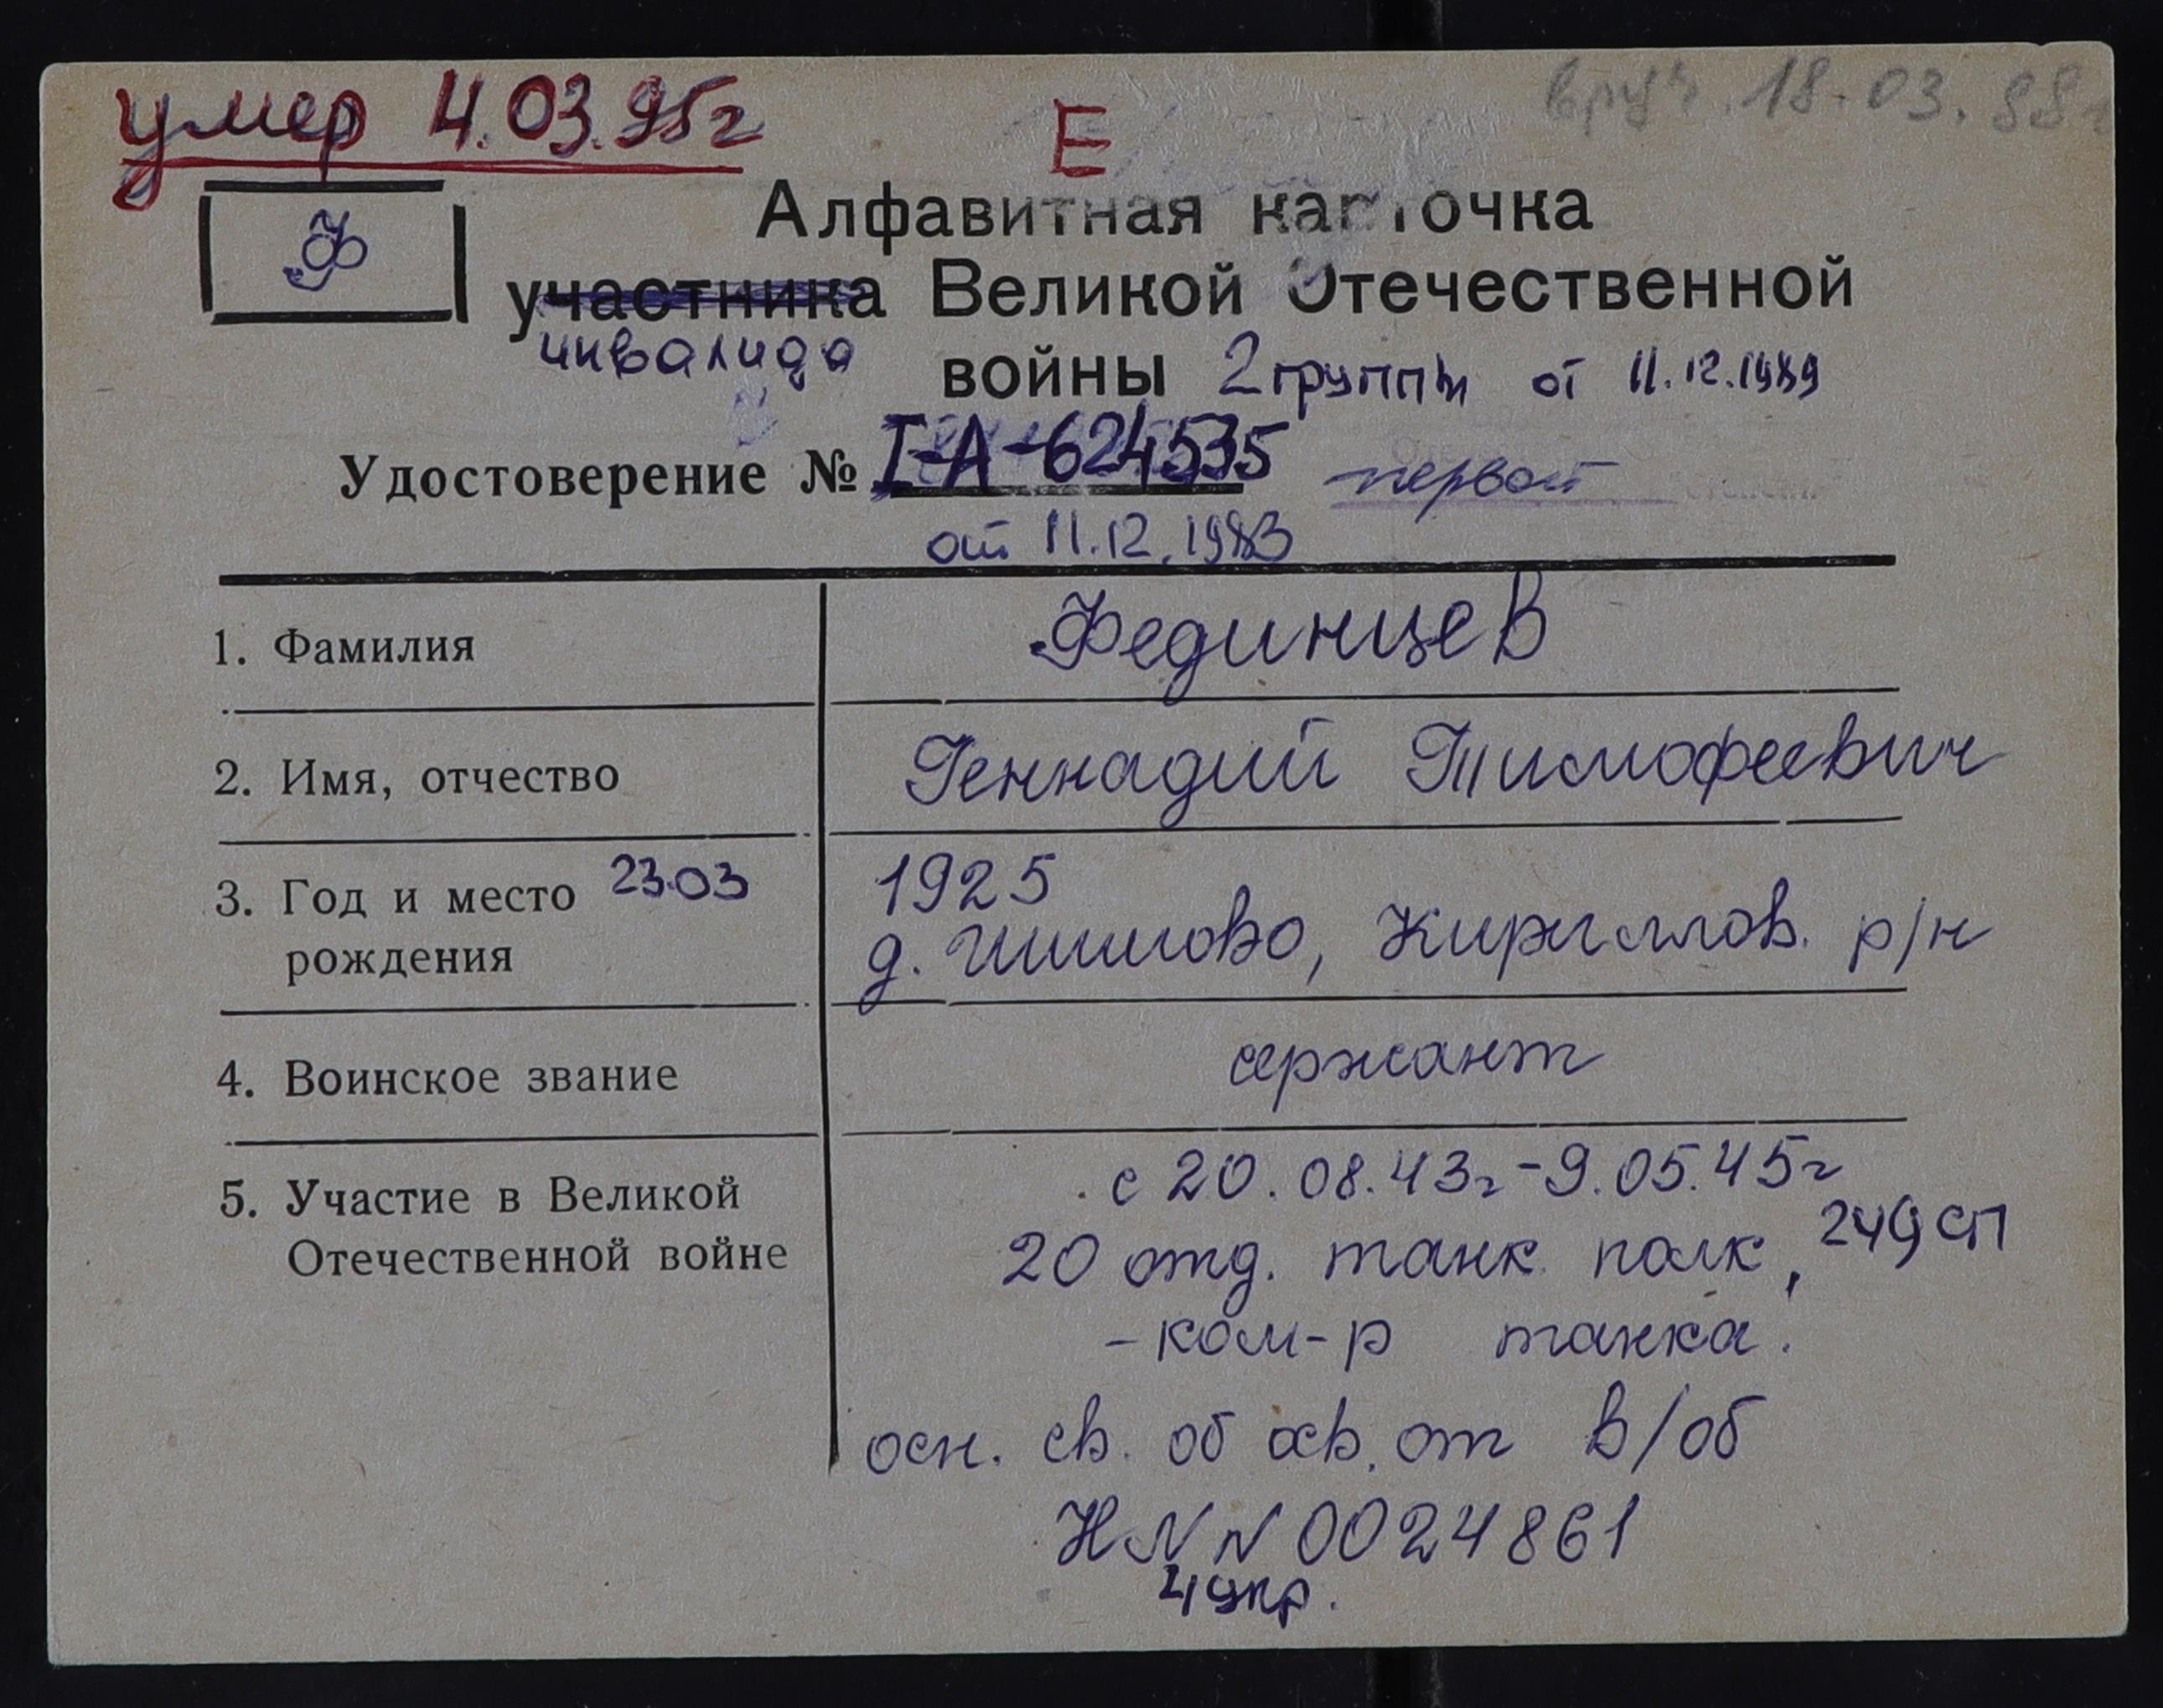 умер 4.03.95г
вруч. 18.03.88г
Е
Ф
Алфавитная карточка
участника Великой Отечественной
инвалида войны 2 группы от 11.12.1989
Удостоверение № I-А-624535 первой
от 11.12.1983
1. Фамилия Фединцев
2. Имя, отчество Геннадий Тимофеевич
3. Год и место 23.03 1925
рождения д. Шишово, Кириллов. р/н
4. Воинское звание сержант
5. Участие в Великой с 20.08.43г - 9.05.45г
Отечественной войне 20 отд. танк. полк, 249 СП
- ком-р танка.
осн. св. об осв. от в/об
НN N 0024861
4 укр.